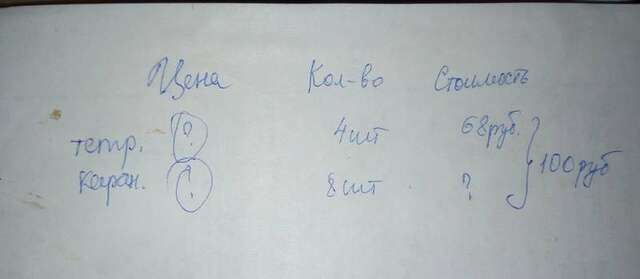 Цена Кол-во Стоимость
тетр. ? 4шт 68руб.
каран. ? 8шт ?
100руб